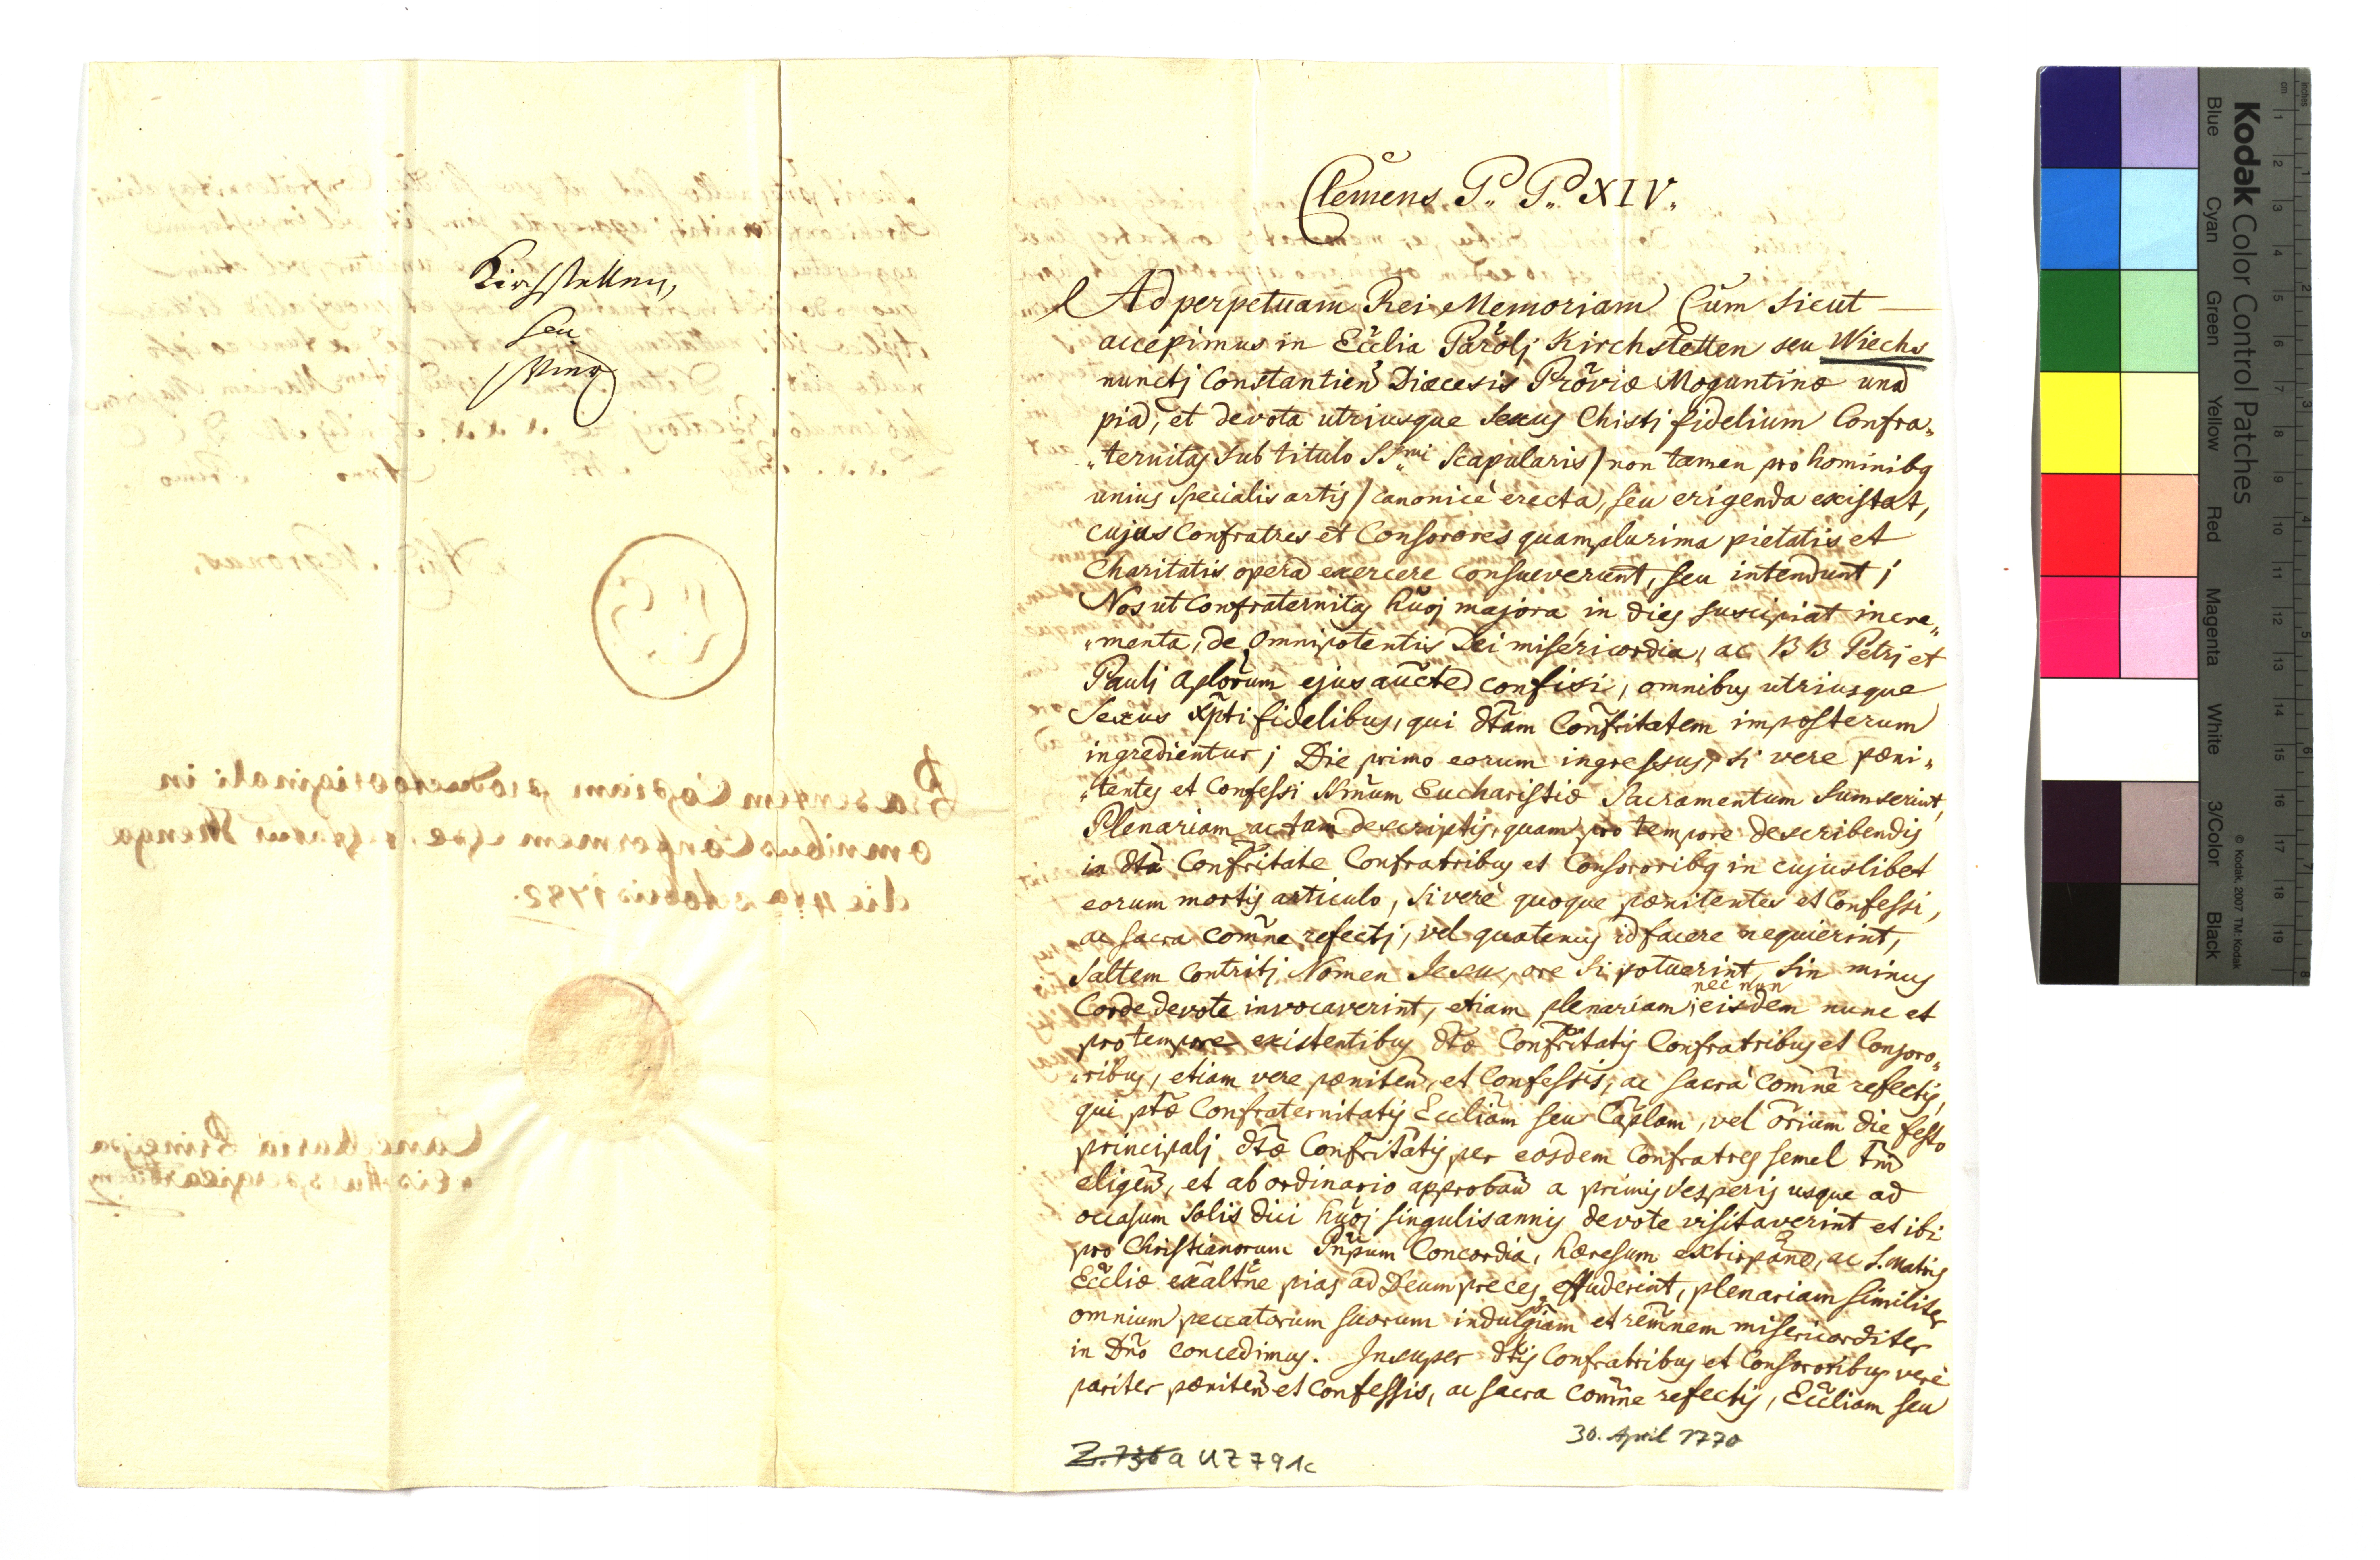 Kirchstetten,
seu
Clemens P. P. XIV.
Ad perpetuam Rei Memoriam Cum sicut
accepimus in Ecclia Parolj Kirchstetten seu Wiechs
nunctj Constantien Diæcesis Proviæ Moguntinæ una
pia, et devota utriusque sexus Chisti fidelium Confra„
„ternitas sub titulo SS„mi Scapularis / non tamen pro hominibq
unius specialis artis / canonicè erecta, seu erigenda existat,
cujus Confratres et Consorores quamplurima pietatis et
Charitatis opera exercere consueverunt, seu intendunt;
Nos ut Confraternitas huoj majora in dies suscipiat incre„
„menta, de Omnipotentis Dei misericordia, ac B B Petrj et
Paulj Aplorum ejus aucte confisi, omnibus utriusque
Sexus Xpti fidelibus, qui dtam Confritatem imposterum
ingredientur; Die primo eorum ingressus, si vere pæni„
„tentes et Confessi SSmum Eucharistiæ Sacramentum sumserint,
Plenariam, ac tam descriptis, quam pro tempore describendis
in dta Confritate Confratribus et Consororibq in cujuslibet
eorum mortis articulo, si verè quoque pænitentes et Confessi,
ac sacra comne refectj, vel quatenus id facere nequierint,
saltem Contritj Nomen Jesu, ore si potuerint, sin minus
Corde devote invocaverint, etiam plenariam, nec non eisdem nunc et
pro tempore existentibus dtæ Confritatis Confratribus et Consoro„
„ribus, etiam vere pæniten, et Confessis, ac sacrà Comne refectis,
qui ptæ Confraternitatis Eccliam seu Caplam, vel orium die festo
principalj dtæ Confritatis per eosdem Confratres semel tm
eligen, et ab ordinario approban a primis Vesperis usque ad
occasum Solis diei huoj singulis annis devote visitaverint et ibi
pro Christianorum Pnpum Concordia, hæresum extirpane, ac S. Matris
Eccliæ exaltne pias ad Deum preces effuderint, plenariam similiter
omnium peccatorum suorum indulgiam et remnem misericorditer
in Dno concedimus. Insuper dtis Confratribus et Consororibus verè
pariter pæniten et Confessis, ac sacra Comne refectis, Eccliam seu
30. April 1770
Z. 736 a UZ 791c
Kodak Color Control Patches
Blue Cyan Green Yellow Red Magenta White 3/Color Black
© Kodak, 2007 TM: Kodak
cm 1 2 3 4 5 6 7 8 9 10 11 12 13 14 15 16 17 18 19
inches 1 2 3 4 5 6 7 8